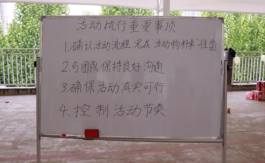 活动执行重要事项
1.确认活动流程 完成活动物料准备
2.与团队保持良好沟通
3.确保活动真实可行
4.控制活动节奏